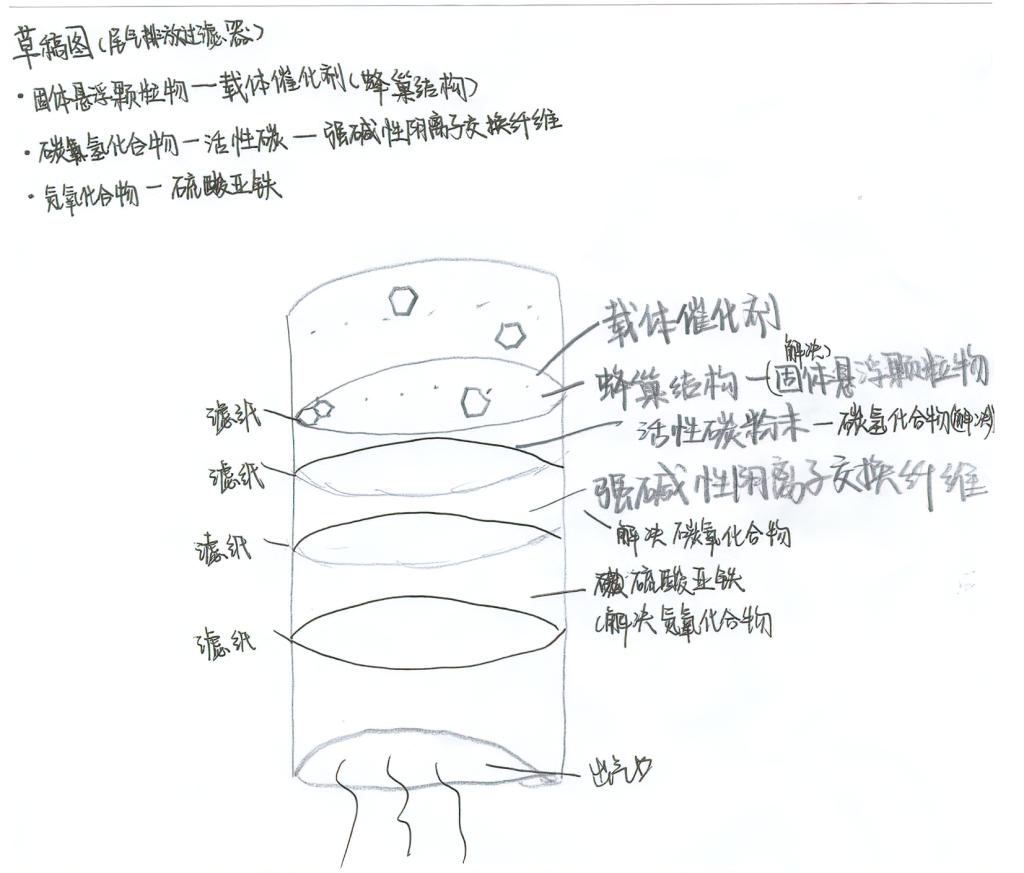 草稿图(尾气排放过滤器)
·固体悬浮颗粒物一载体催化剂(蜂巢结构)
·碳氢化合物一活性碳一强碱性阴离子交换纤维
·氮氧化合物一硫酸亚铁
载体催化剂
解决
蜂巢结构一(固体悬浮颗粒物
滤纸
活性碳粉末一碳氢化合物(解决)
滤纸
强碱性阴离子交换纤维
滤纸
解决碳氧化合物
硫酸亚铁
(解决氮氧化合物
滤纸
出气口